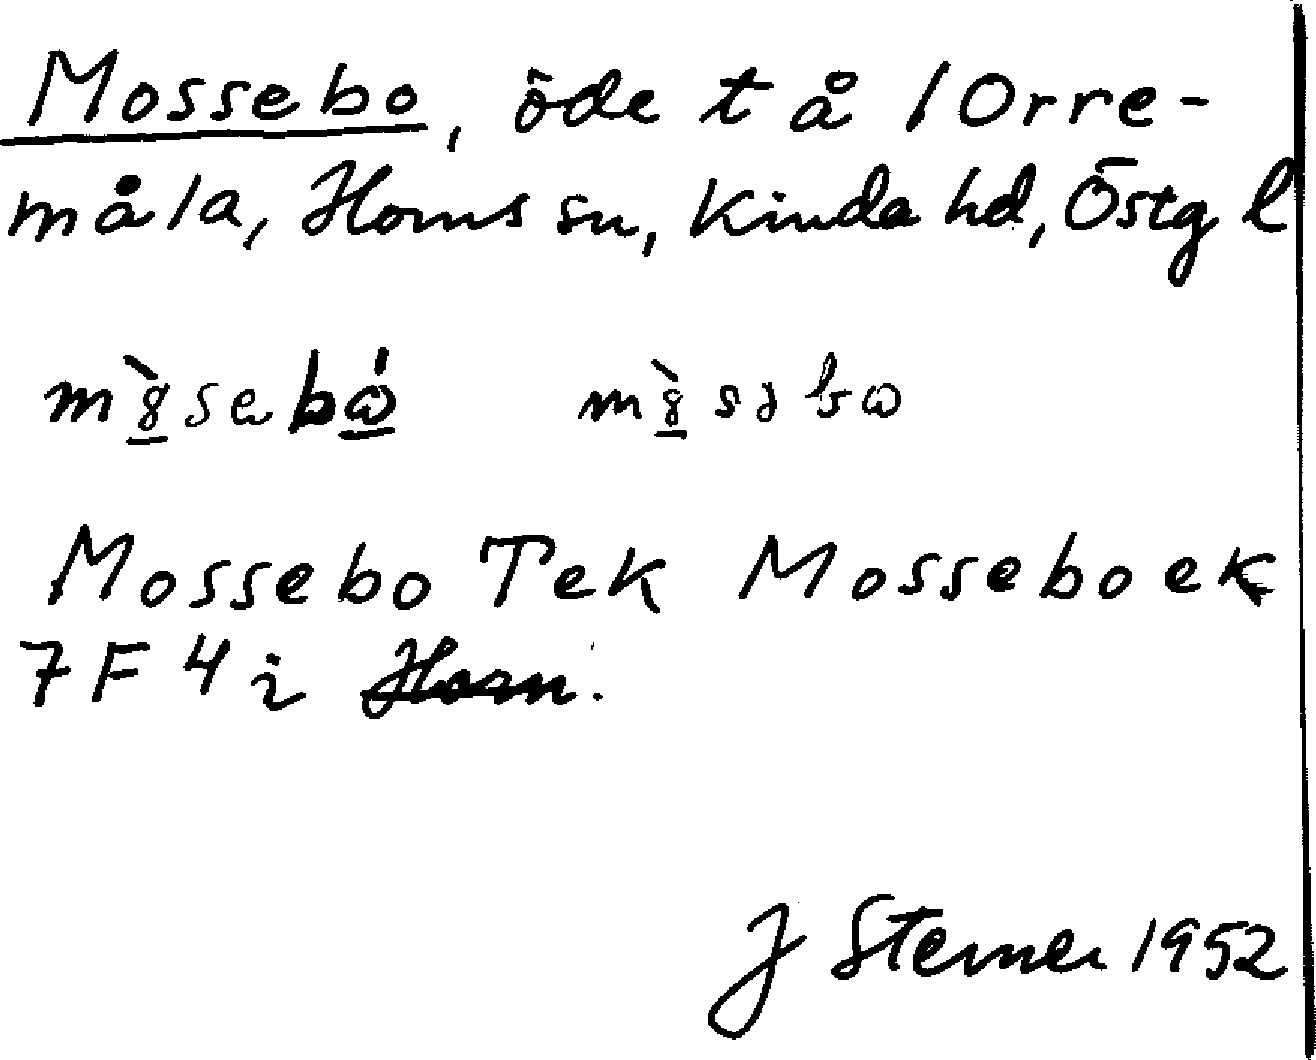 Mossebo, öde t å 1 Orre-
måla, Horns sn, Kinda hd, Östg l
Mossebo Tek Mosseboek
7F 4 i Horn.
J Sterner 1952